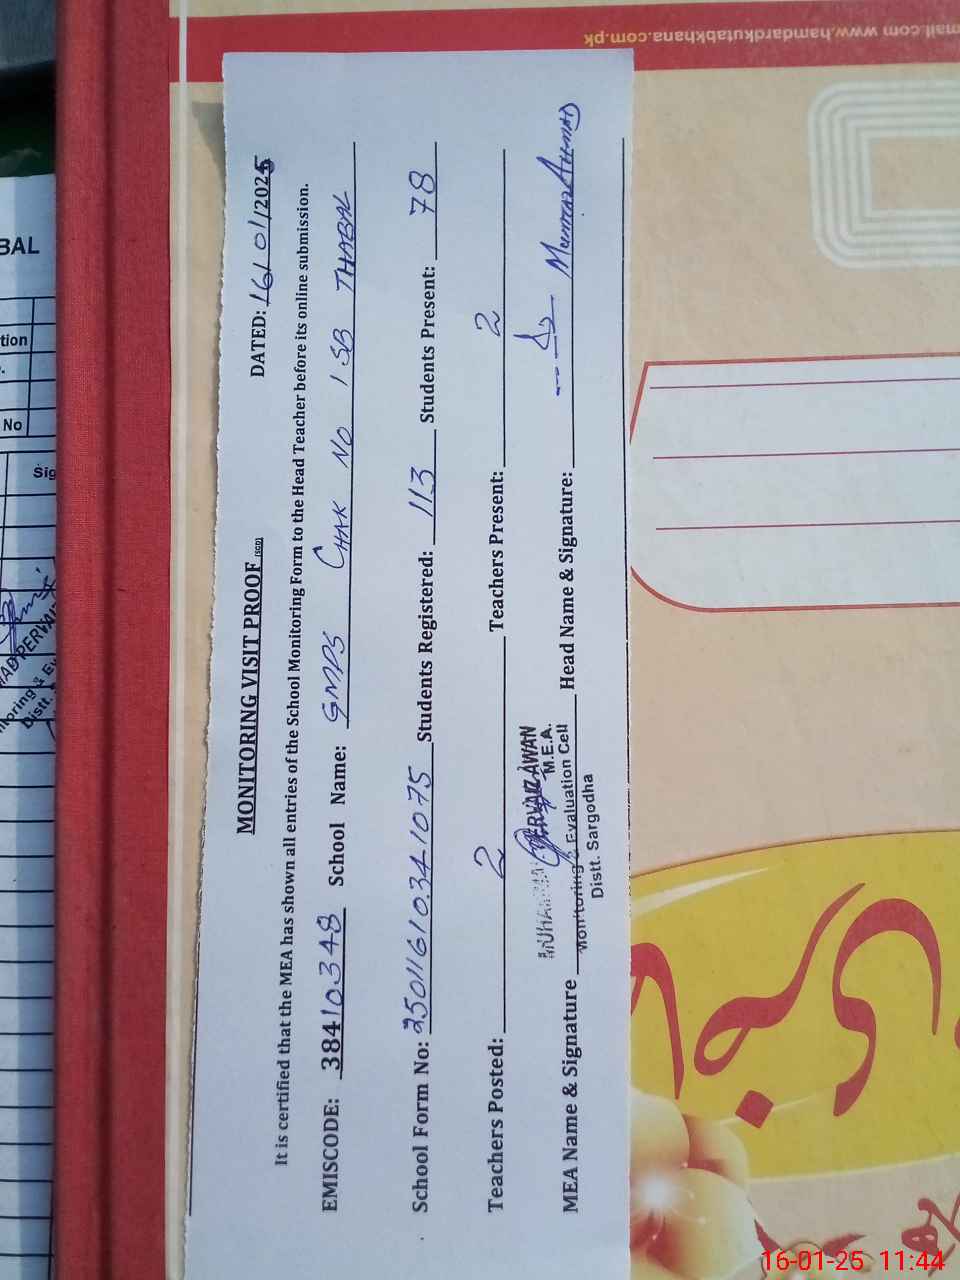 mail.com www.hamdardkutabkhana.com.pk
MONITORING VISIT PROOF (SGD)
DATED: 16/01/2025
It is certified that the MEA has shown all entries of the School Monitoring Form to the Head Teacher before its online submission.
EMISCODE: 38410348 School Name: GMPS CHAK NO 1 SB THABAL
School Form No: 25011610341075 Students Registered: 113 Students Present: 78
Teachers Posted: 2 Teachers Present: 2
MEA Name & Signature Head Name & Signature: Mumtaz Ahmad
MUHAMMAD PERVAIZ AWAN
M.E.A.
Monitoring & Evaluation Cell
Distt. Sargodha
BAL
tion
No
Sig
PERVAI
itoring & Ev
Distt.
16-01-25 11:44